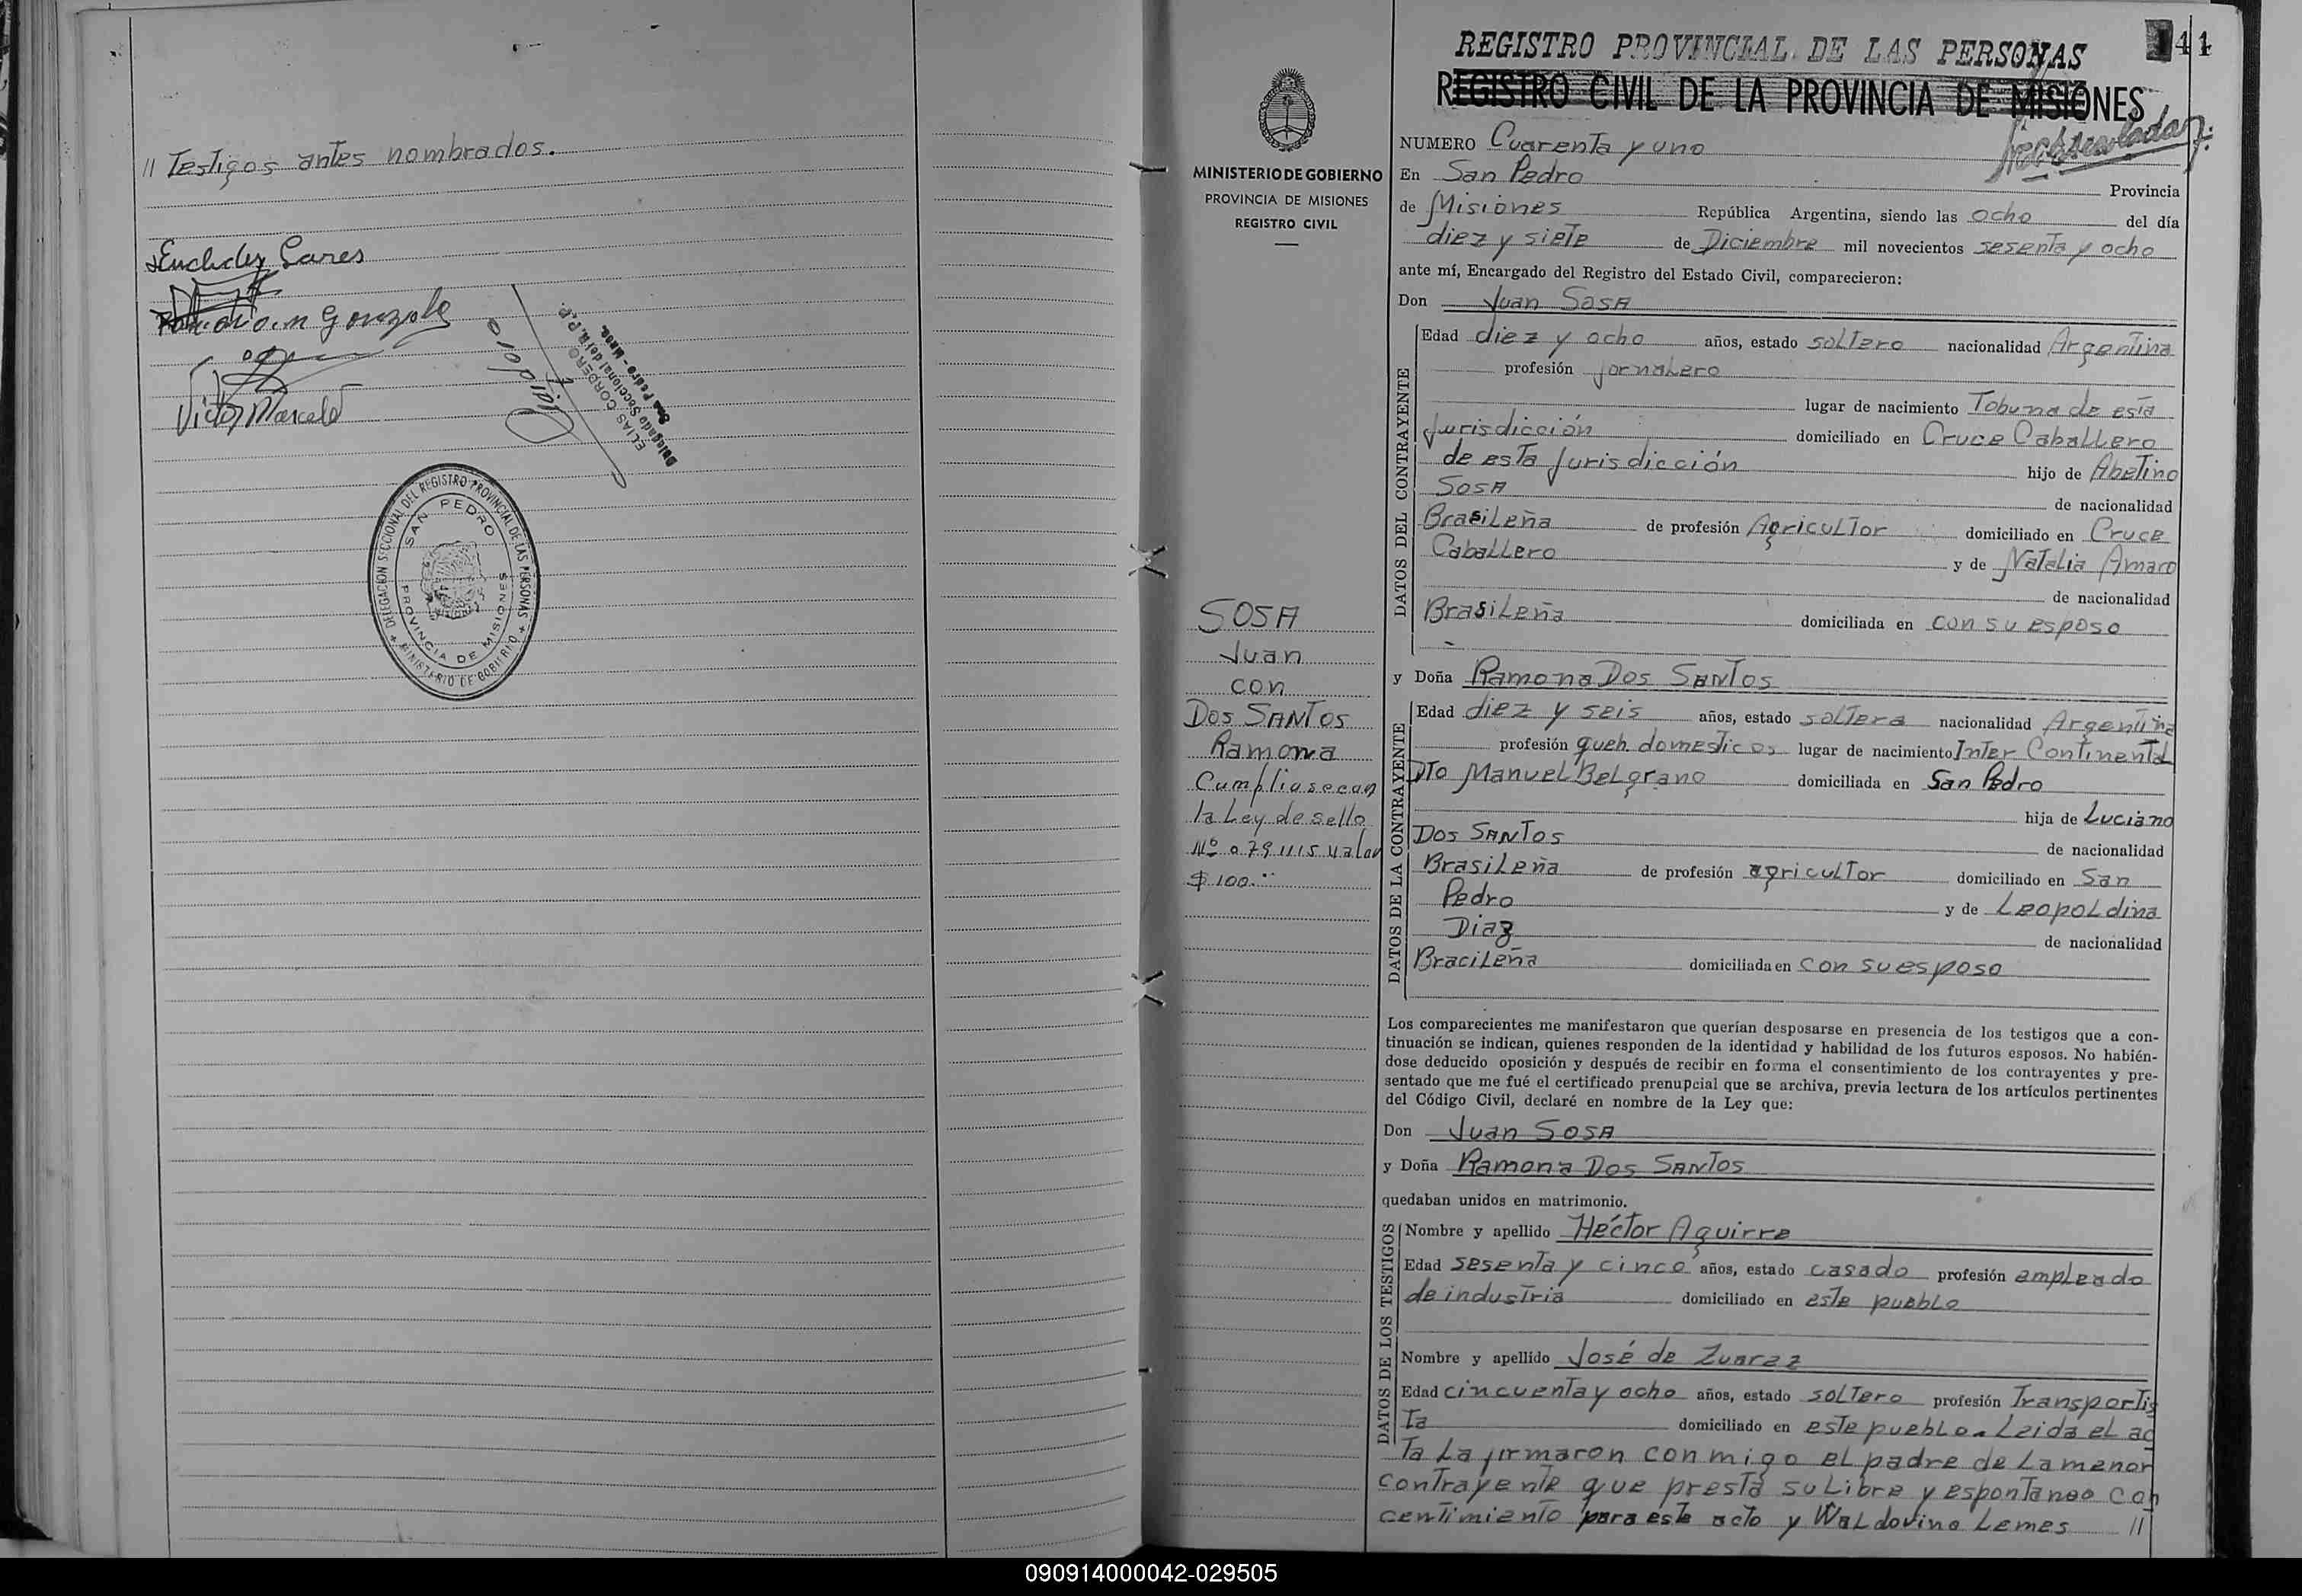 // Testigos antes nombrados.
Euclides
Gonzale
Victor Marcelo
ELIAS CORDERO
Delegado Seccional del R.P.P.
San Pedro - Mnes.
DELEGACION SECCIONAL DEL REGISTRO PROVINCIAL DE LAS PERSONAS
MINISTERIO DE GOBIERNO
SAN PEDRO
PROVINCIA DE MISIONES
MINISTERIO DE GOBIERNO
PROVINCIA DE MISIONES
REGISTRO CIVIL
SOSA
Juan
con
Dos SANTos
Ramona
la Ley de sello
$ 100.
41
REGISTRO PROVINCIAL DE LAS PERSONAS
REGISTRO CIVIL DE LA PROVINCIA DE MISIONES
NUMERO Cuarenta y uno
En San Pedro Provincia
de Misiones República Argentina, siendo las ocho del día
diez y siete de Diciembre mil novecientos sesenta y ocho
ante mí, Encargado del Registro del Estado Civil, comparecieron:
Don Juan SosA
DATOS DEL CONTRAYENTE
Edad diez y ocho años, estado soltero nacionalidad Argentina
profesión jornalero
lugar de nacimiento Tobuna de esta
jurisdicción domiciliado en Cruce Caballero
de esta jurisdicción hijo de Abelino
SosA de nacionalidad
Brasileña de profesión Agricultor domiciliado en Cruce
Caballero y de Natalia Amaro
de nacionalidad
Brasileña domiciliada en con su esposo
y Doña Ramona Dos SANTos
DATOS DE LA CONTRAYENTE
Edad diez y seis años, estado soltera nacionalidad Argentina
profesión queh. domesticos lugar de nacimiento Inter Continental
Dto Manuel Belgrano domiciliada en San Pedro
hija de Luciano
Dos SANTos de nacionalidad
Brasileña de profesión agricultor domiciliado en San
Pedro y de Leopoldina
Diaz de nacionalidad
Bracileña domiciliada en con su esposo
Los comparecientes me manifestaron que querían desposarse en presencia de los testigos que a con-
tinuación se indican, quienes responden de la identidad y habilidad de los futuros esposos. No habién-
dose deducido oposición y después de recibir en forma el consentimiento de los contrayentes y pre-
sentado que me fué el certificado prenupcial que se archiva, previa lectura de los artículos pertinentes
del Código Civil, declaré en nombre de la Ley que:
Don Juan SosA
y Doña Ramona Dos SANTos
quedaban unidos en matrimonio.
DATOS DE LOS TESTIGOS
Nombre y apellido Héctor Aguirre
Edad sesenta y cinco años, estado casado profesión empleado
de industria domiciliado en este pueblo
Nombre y apellido José de Zuarez
Edad cincuenta y ocho años, estado soltero profesión Transportis
ta domiciliado en este pueblo. Leida el ac
ta la firmaron conmigo el padre de la menor
contrayente que presta su libre y espontaneo con
centimiento para este acto y Waldovino Lemes //
090914000042-029505